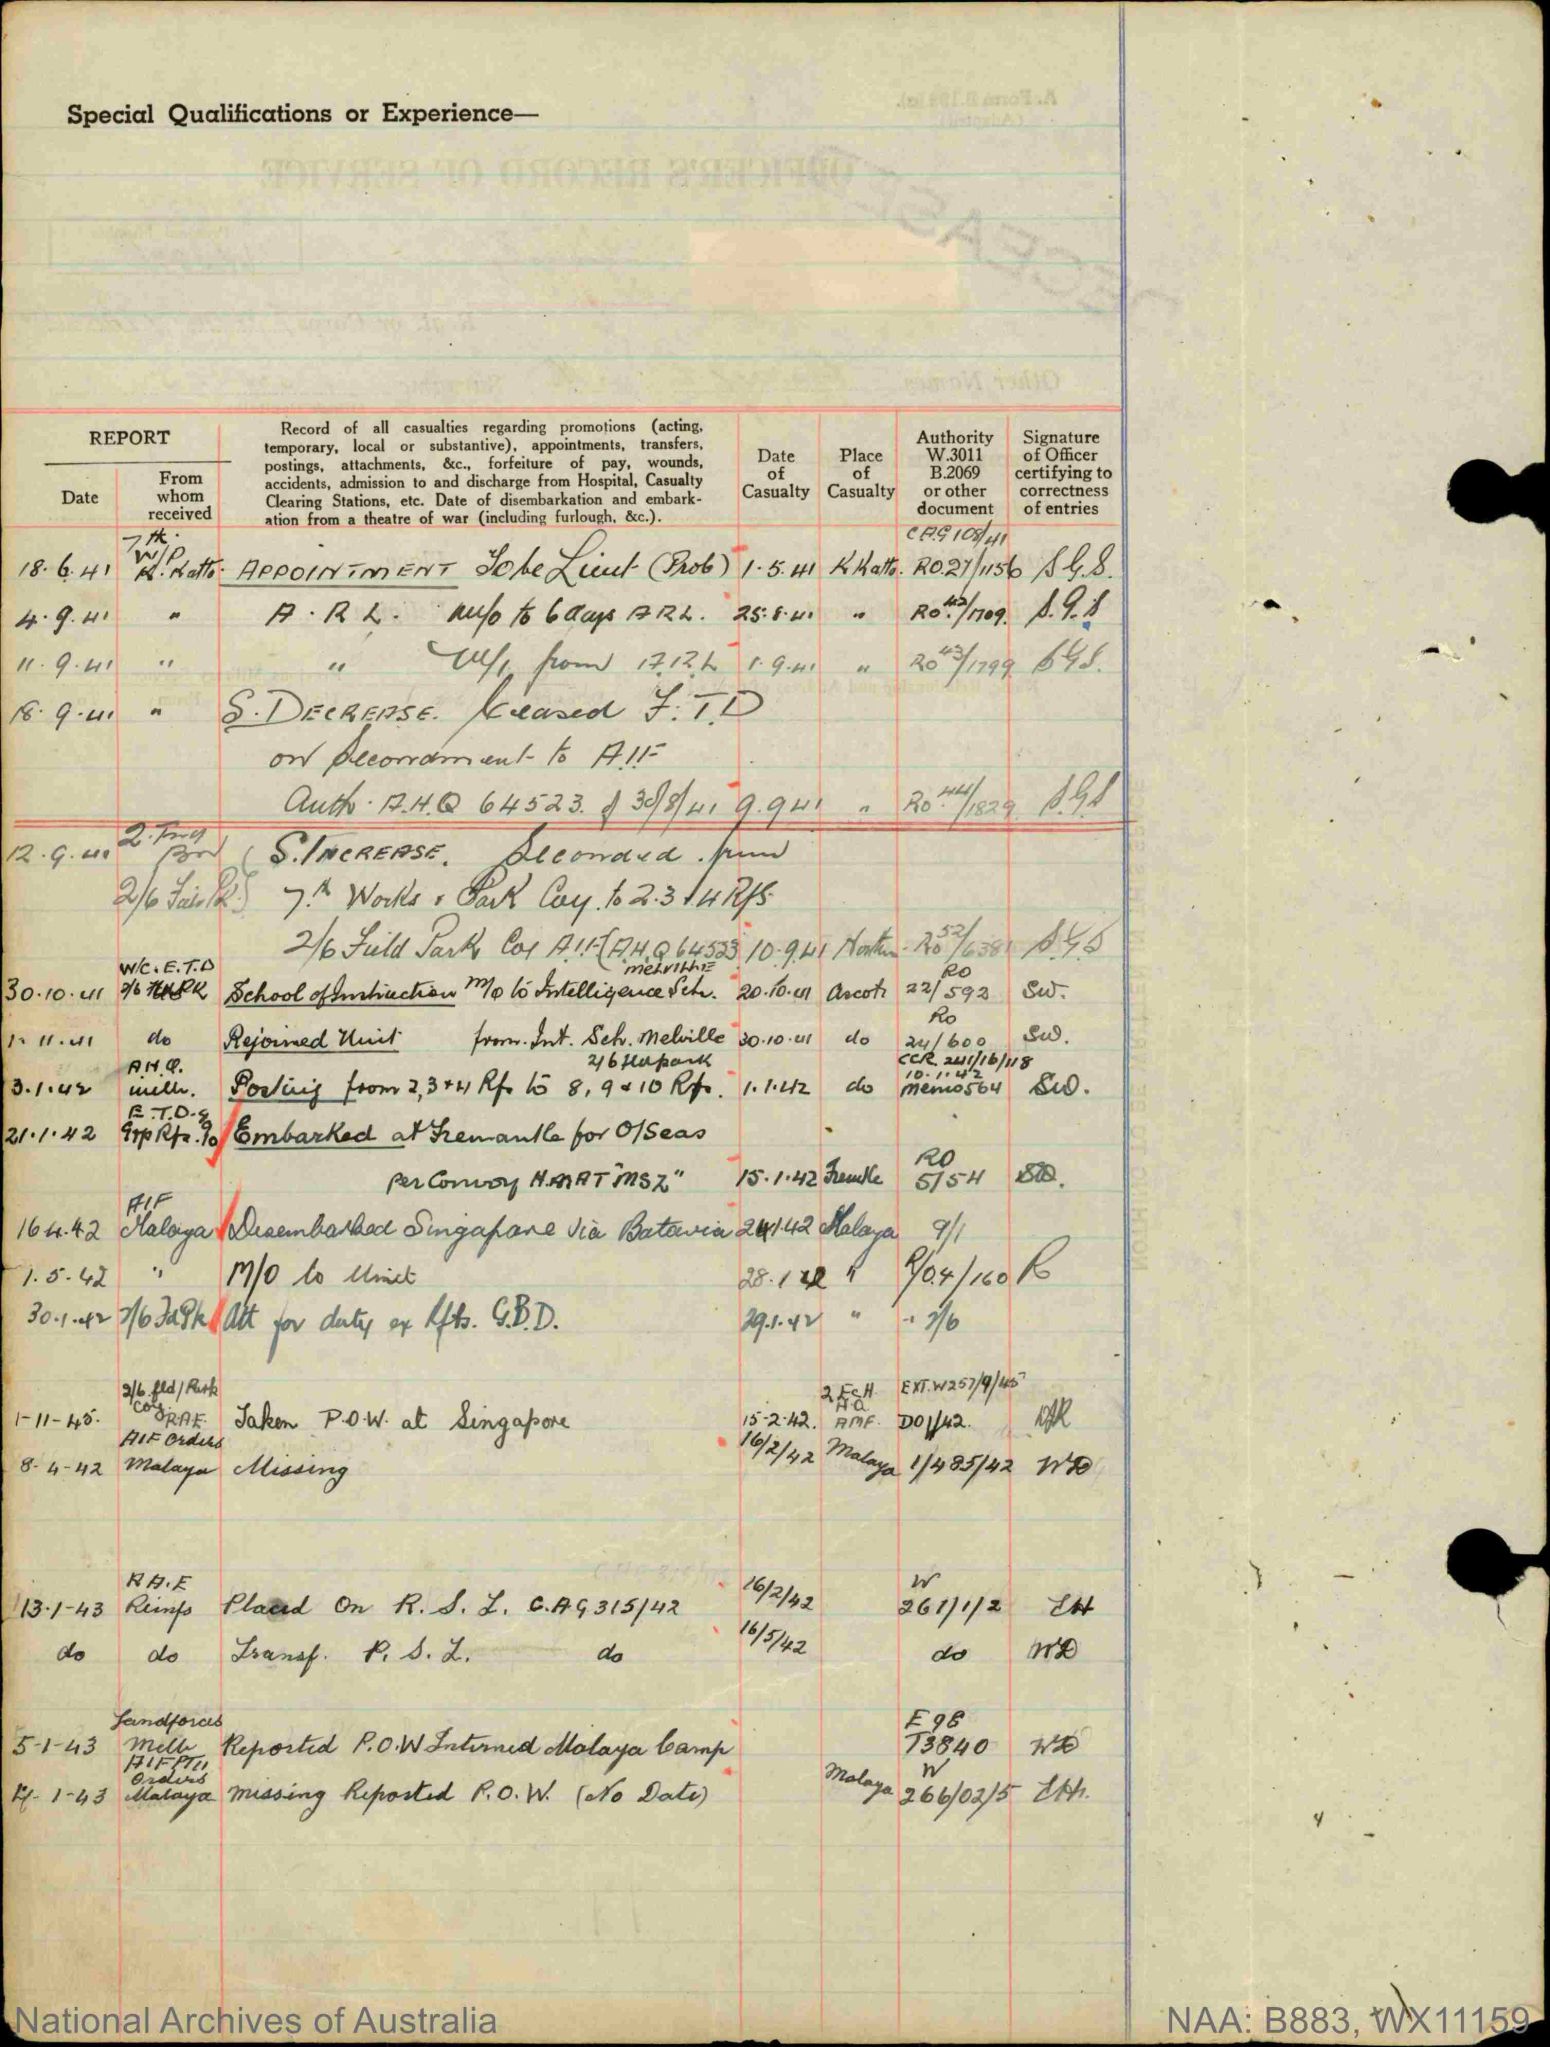 Special Qualifications or Experience—
REPORT
Date
From whom received
Record of all casualties regarding promotions (acting,
temporary, local or substantive), appointments, transfers,
postings, attachments, &c., forfeiture of pay, wounds,
accidents, admission to and discharge from Hospital, Casualty
Clearing Stations, etc. Date of disembarkation and embark-
ation from a theatre of war (including furlough, &c.).
Date of Casualty
Place of Casualty
Authority W.3011 B.2069 or other document
Signature of Officer certifying to correctness of entries
7th. CAG 108/41
18.6.41 W/P K. Katta. APPOINTMENT To be Lieut (Prob) 1.5.41 K Katta. RO.27/1156 S.G.S.
4.9.41 " A.R.L. M/o to 6 days ARL. 25.8.41 " RO 42/1709. S.G.S
11.9.41 " " from 1.9.41 " RO 43/1799 SGS.
18.9.41 " S. DECREASE. Ceased F.T.D
on Secondment to AIF
Auth. A.H.Q 64523. of 30/8/41 9.9.41 " RO 44/1829 S.G.S
12.9.41 2. Trng Bn S. INCREASE. Seconded from
7th Works & Park Coy. to 2.3+4 Rfs
2/6 Field Park Coy AIF (A.H.Q 64523 10.9.41 Northam RO 52/6381 S.G.S
W/C. E.T.D Melville RO
30.10.41 2/6 School of Instruction M/o to Intelligence Sch. 20.10.41 Ascot 22/592 SW.
RO
1.11.41 do Rejoined Unit from. Int. Sch. Melville 30.10.41 do 24/600 SW.
A.H.Q. 2/6 fld park CCR. 241/16/118
10.1.42
3.1.42 Melb. Posting from 2,3+4 Rfs to 8, 9 & 10 Rfs. 1.1.42 do memo 564 SW.
E.T.D.
21.1.42 Grp Rfs. Embarked at Fremantle for O/Seas
RO
per Convoy H.M.A.T "MSZ" 15.1.42 Fremtle 5/54 SW.
AIF
16.4.42 Malaya Disembarked Singapore via Batavia 24.1.42 Malaya 9/1
1.5.42 " M/O to Unit 28.1.42 " R/O.4/160 R
30.1.42 2/6 Fd Pk Att for duty ex Rfts. G.B.D. 29.1.42 " " 2/6
2/6 fld/Park Coy 2 Ech H.Q EXT. W257/9/45
1-11-45. RAE Taken P.O.W. at Singapore 15-2-42. AMF. DO1/42.
AIF Orders
8-4-42 Malaya Missing 16/2/42 Malaya 1/485/42 WD
RAE W
13-1-43 Reinfs Placed On R.S.L. C.A.G 315/42 16/2/42 261/1/2 EH
do do Transf. P.S.L. do 16/5/42 do WD
Landforces E 98
5-1-43 Melb Reported P.O.W Interned Malaya Camp T3840 WD
AIF PTII Orders W
1-43 Malaya Missing Reported P.O.W. (No Date) Malaya 266/02/5 EH.
National Archives of Australia
NAA: B883, WX11159